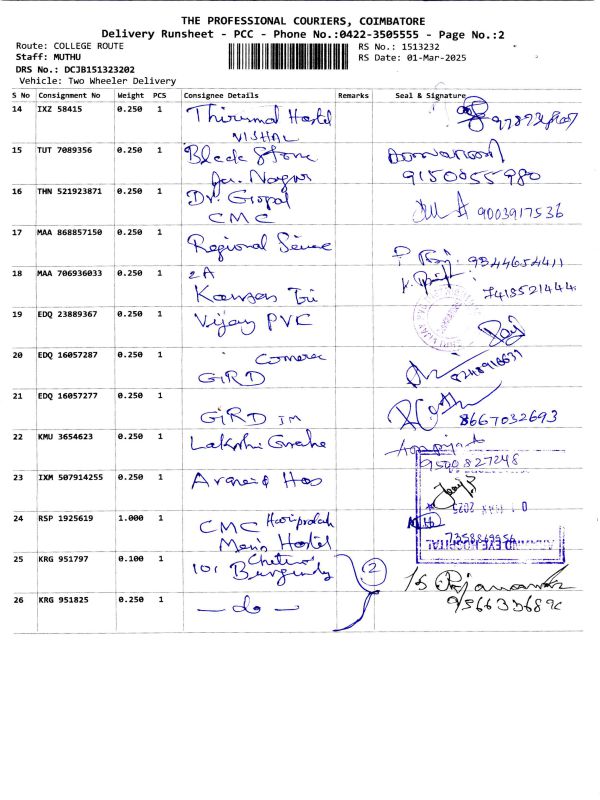 THE PROFESSIONAL COURIERS, COIMBATORE
Delivery Runsheet - PCC - Phone No.:0422-3505555 - Page No.:2
Route: COLLEGE ROUTE
RS No.: 1513232
Staff: MUTHU
RS Date: 01-Mar-2025
DRS No.: DCJB151323202
Vehicle: Two Wheeler Delivery
S No Consignment No Weight PCS Consignee Details Remarks Seal & Signature
14 IXZ 58415 0.250 1 Thirumal Hostel
VISHAL
15 TUT 7089356 0.250 1 Black Stone
Nagar 9150055980
16 THN 521923871 0.250 1 Dr. Gopal
CMC 9003917536
17 MAA 868857150 0.250 1 Regional
9344654411
18 MAA 706936033 0.250 1 2A
7418521444
19 EDQ 23889367 0.250 1 Vijay PVC
20 EDQ 16057287 0.250 1
GIRD 8248916631
21 EDQ 16057277 0.250 1
GIRD JM 8667032693
22 KMU 3654623 0.250 1 Lakshi
9500827248
23 IXM 507914255 0.250 1 Aravind Hos
01 MAR 2025
24 RSP 1925619 1.000 1 CMC
Men's Hostel
7358869556
EYE HOSPITAL
25 KRG 951797 0.100 1
101 Burgundy 2
26 KRG 951825 0.250 1 - do -